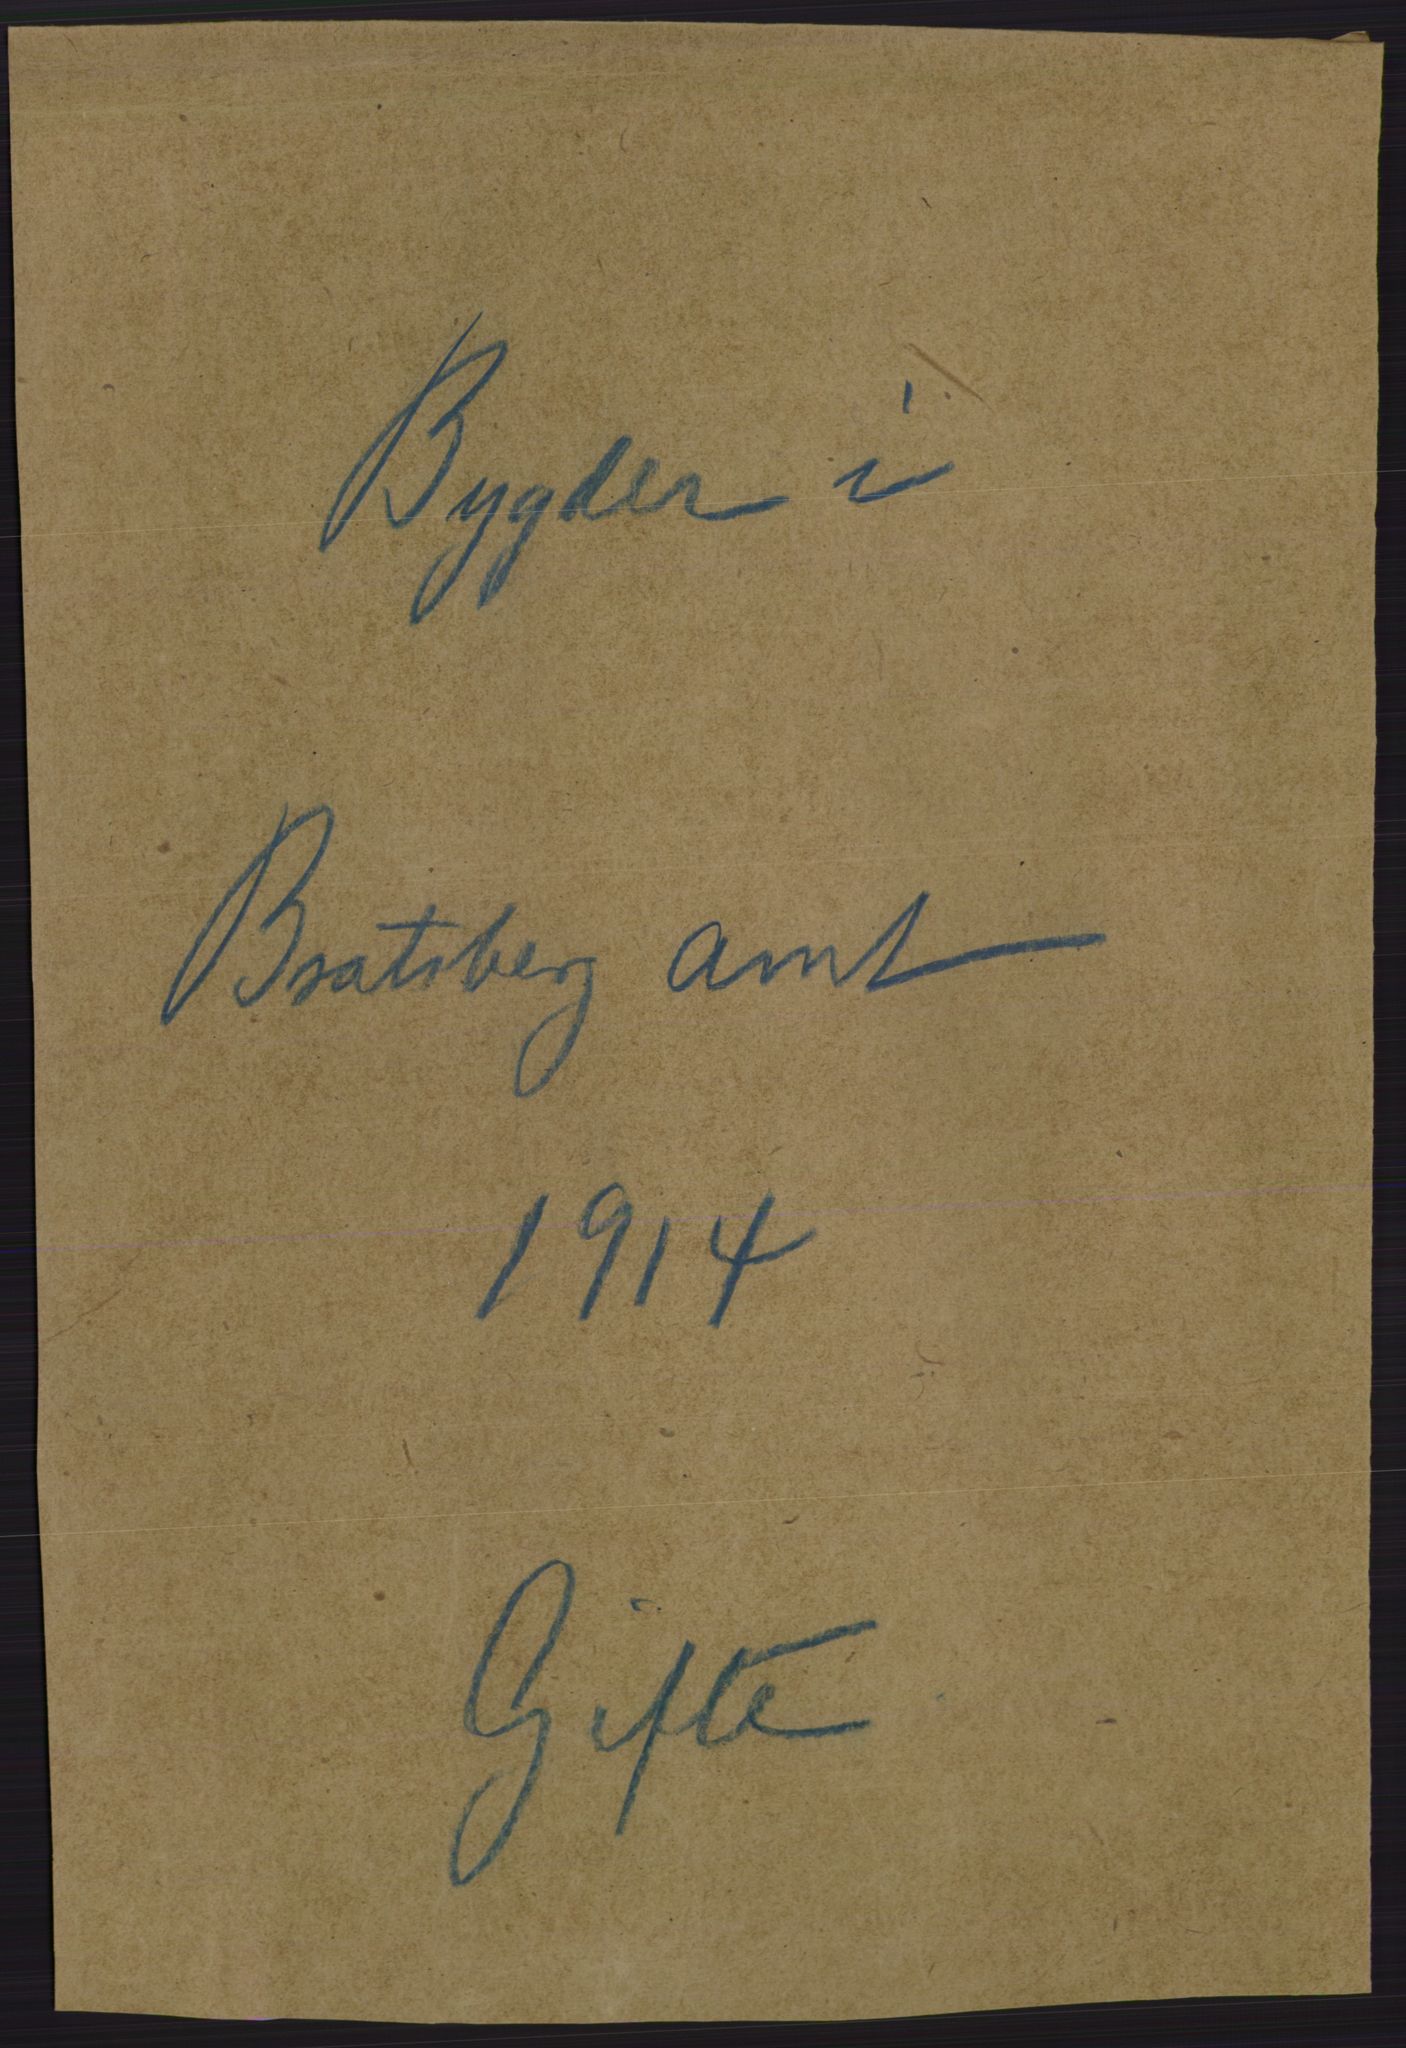 Bygder i
Bratsberg amt
1914
Gifte